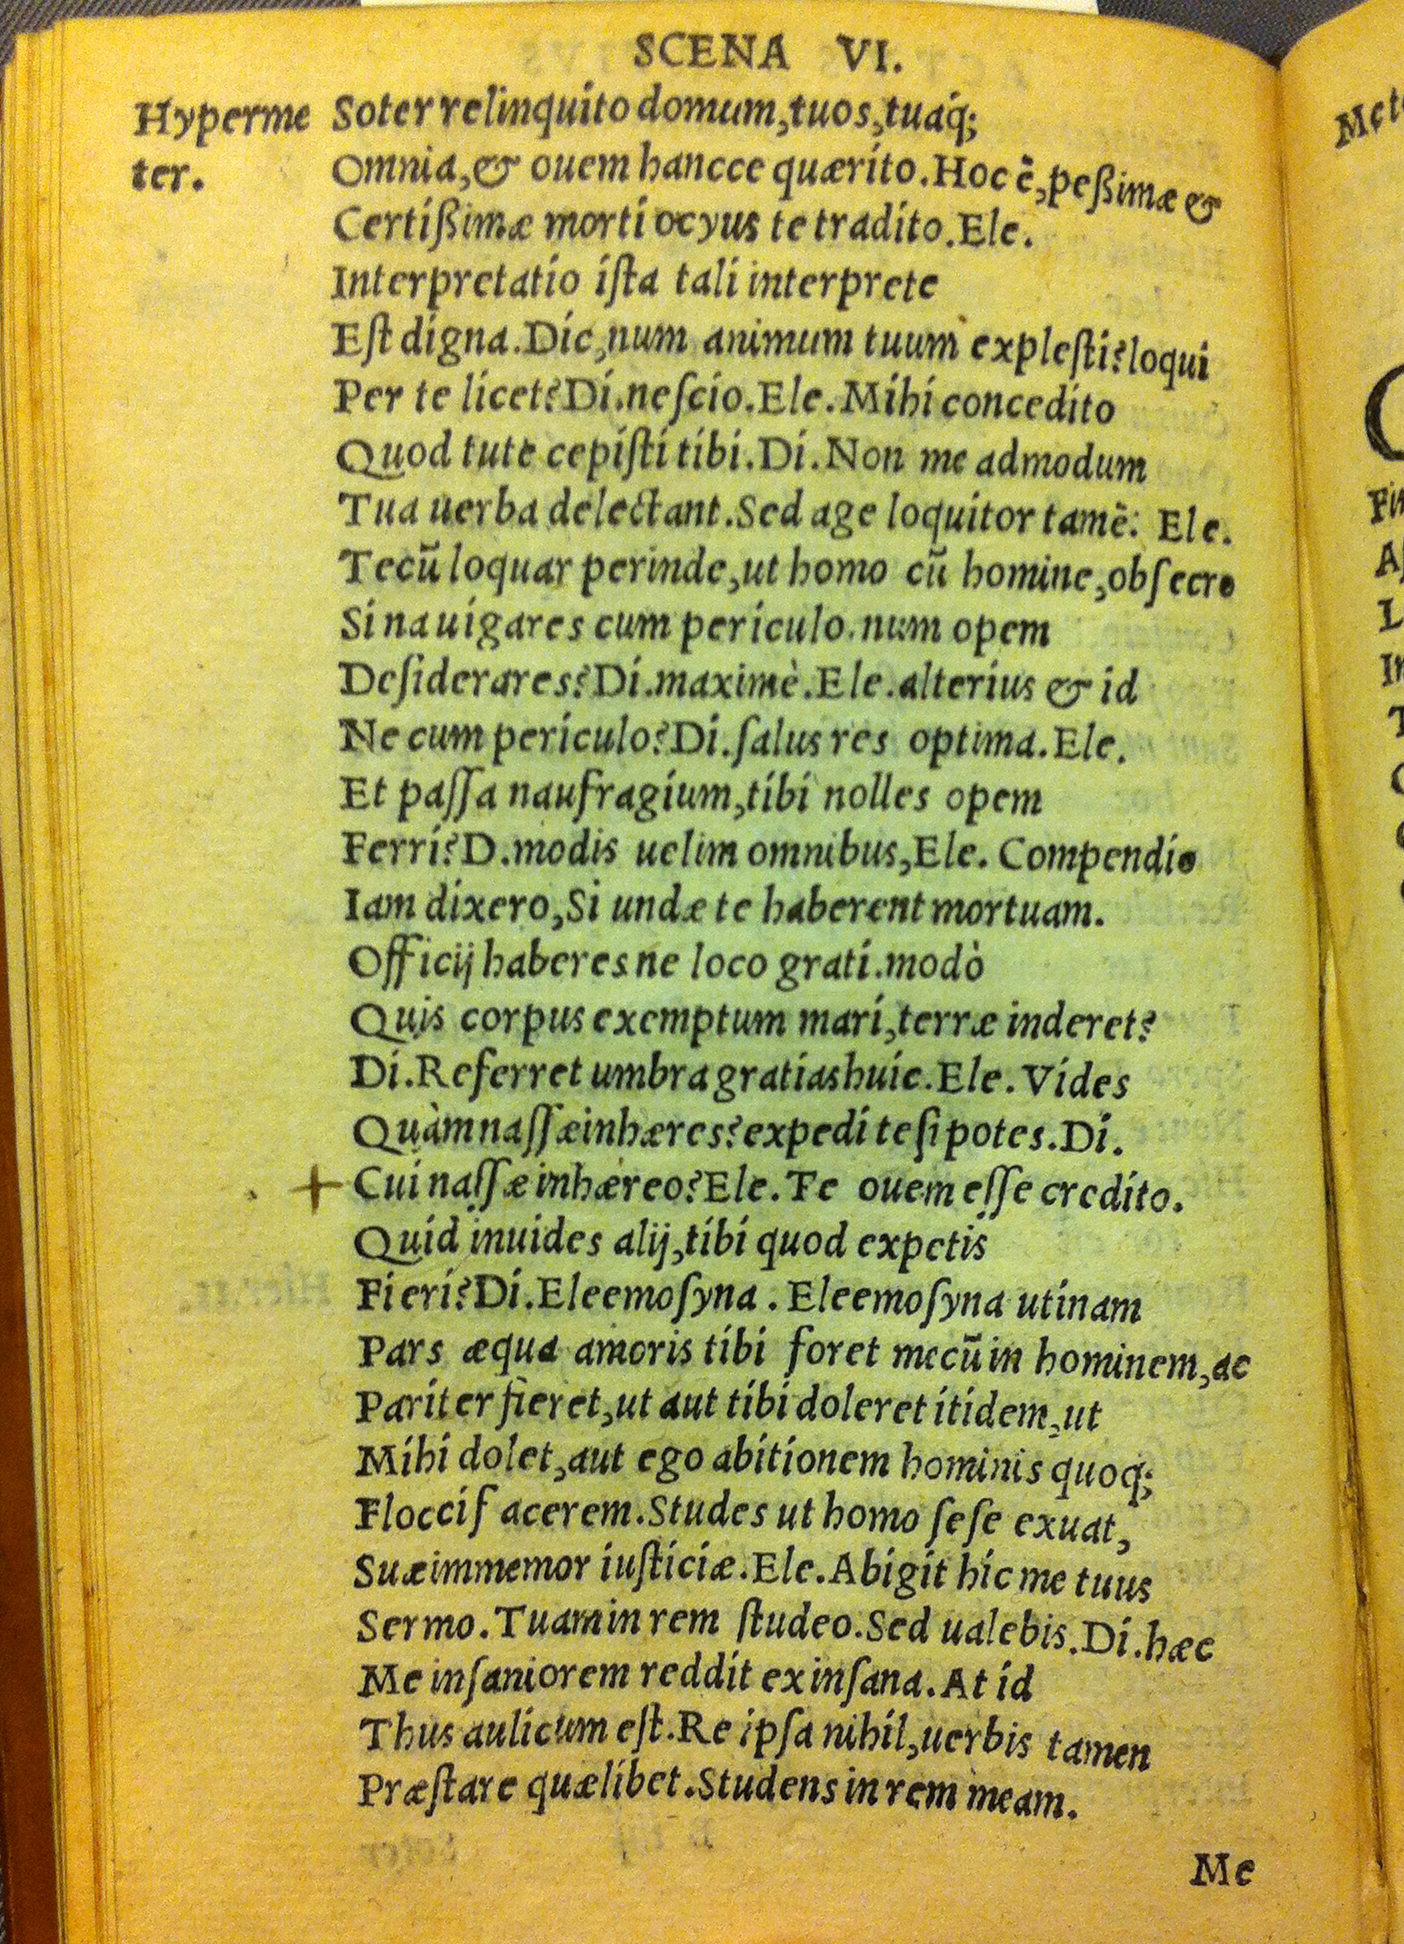 SCENA VI.
Hyperme Soter relinquito domum, tuos, tuaq́;
ter. Omnia, & ouem hancce quærito. Hoc ē, peßimæ &
Certißimæ morti ocyus te tradito. Ele.
Interpretatio iſta tali interprete
Eſt digna. Dic, num animum tuum expleſti? loqui
Per te licet? Di. neſcio. Ele. Mihi concedito
Quod tute cepiſti tibi. Di. Non me admodum
Tua uerba delectant. Sed age loquitor tamē. Ele.
Tecū loquar perinde, ut homo cū homine, obſecro
Si nauigares cum periculo. num opem
Deſiderares? Di. maximè. Ele. alterius & id
Ne cum periculo? Di. ſalus res optima. Ele.
Et paſſa naufragium, tibi nolles opem
Ferri? D. modis uelim omnibus, Ele. Compendio
Iam dixero, Si undæ te haberent mortuam.
Officij haberes ne loco grati. modò
Quis corpus exemptum mari, terræ inderet?
Di. Referret umbra gratias huic. Ele. Vides
Quàm naſſæ inhæres? expedi te ſi potes. Di.
+ Cui naſſæ inhæreo? Ele. Te ouem eſſe credito.
Quid inuides alij, tibi quod expetis
Fieri? Di. Eleemoſyna. Eleemoſyna utinam
Pars æqua amoris tibi foret mecū in hominem, ac
Pariter fieret, ut aut tibi doleret itidem, ut
Mihi dolet, aut ego abitionem hominis quoq;
Flocci facerem. Studes ut homo ſeſe exuat,
Suæ immemor iuſticiæ. Ele. Abigit hic me tuus
Sermo. Tuam in rem ſtudeo. Sed ualebis. Di. hæc
Me inſaniorem reddit ex inſana. At id
Thus aulicum eſt. Re ipſa nihil, uerbis tamen
Præſtare quælibet. Studens in rem meam.
Me